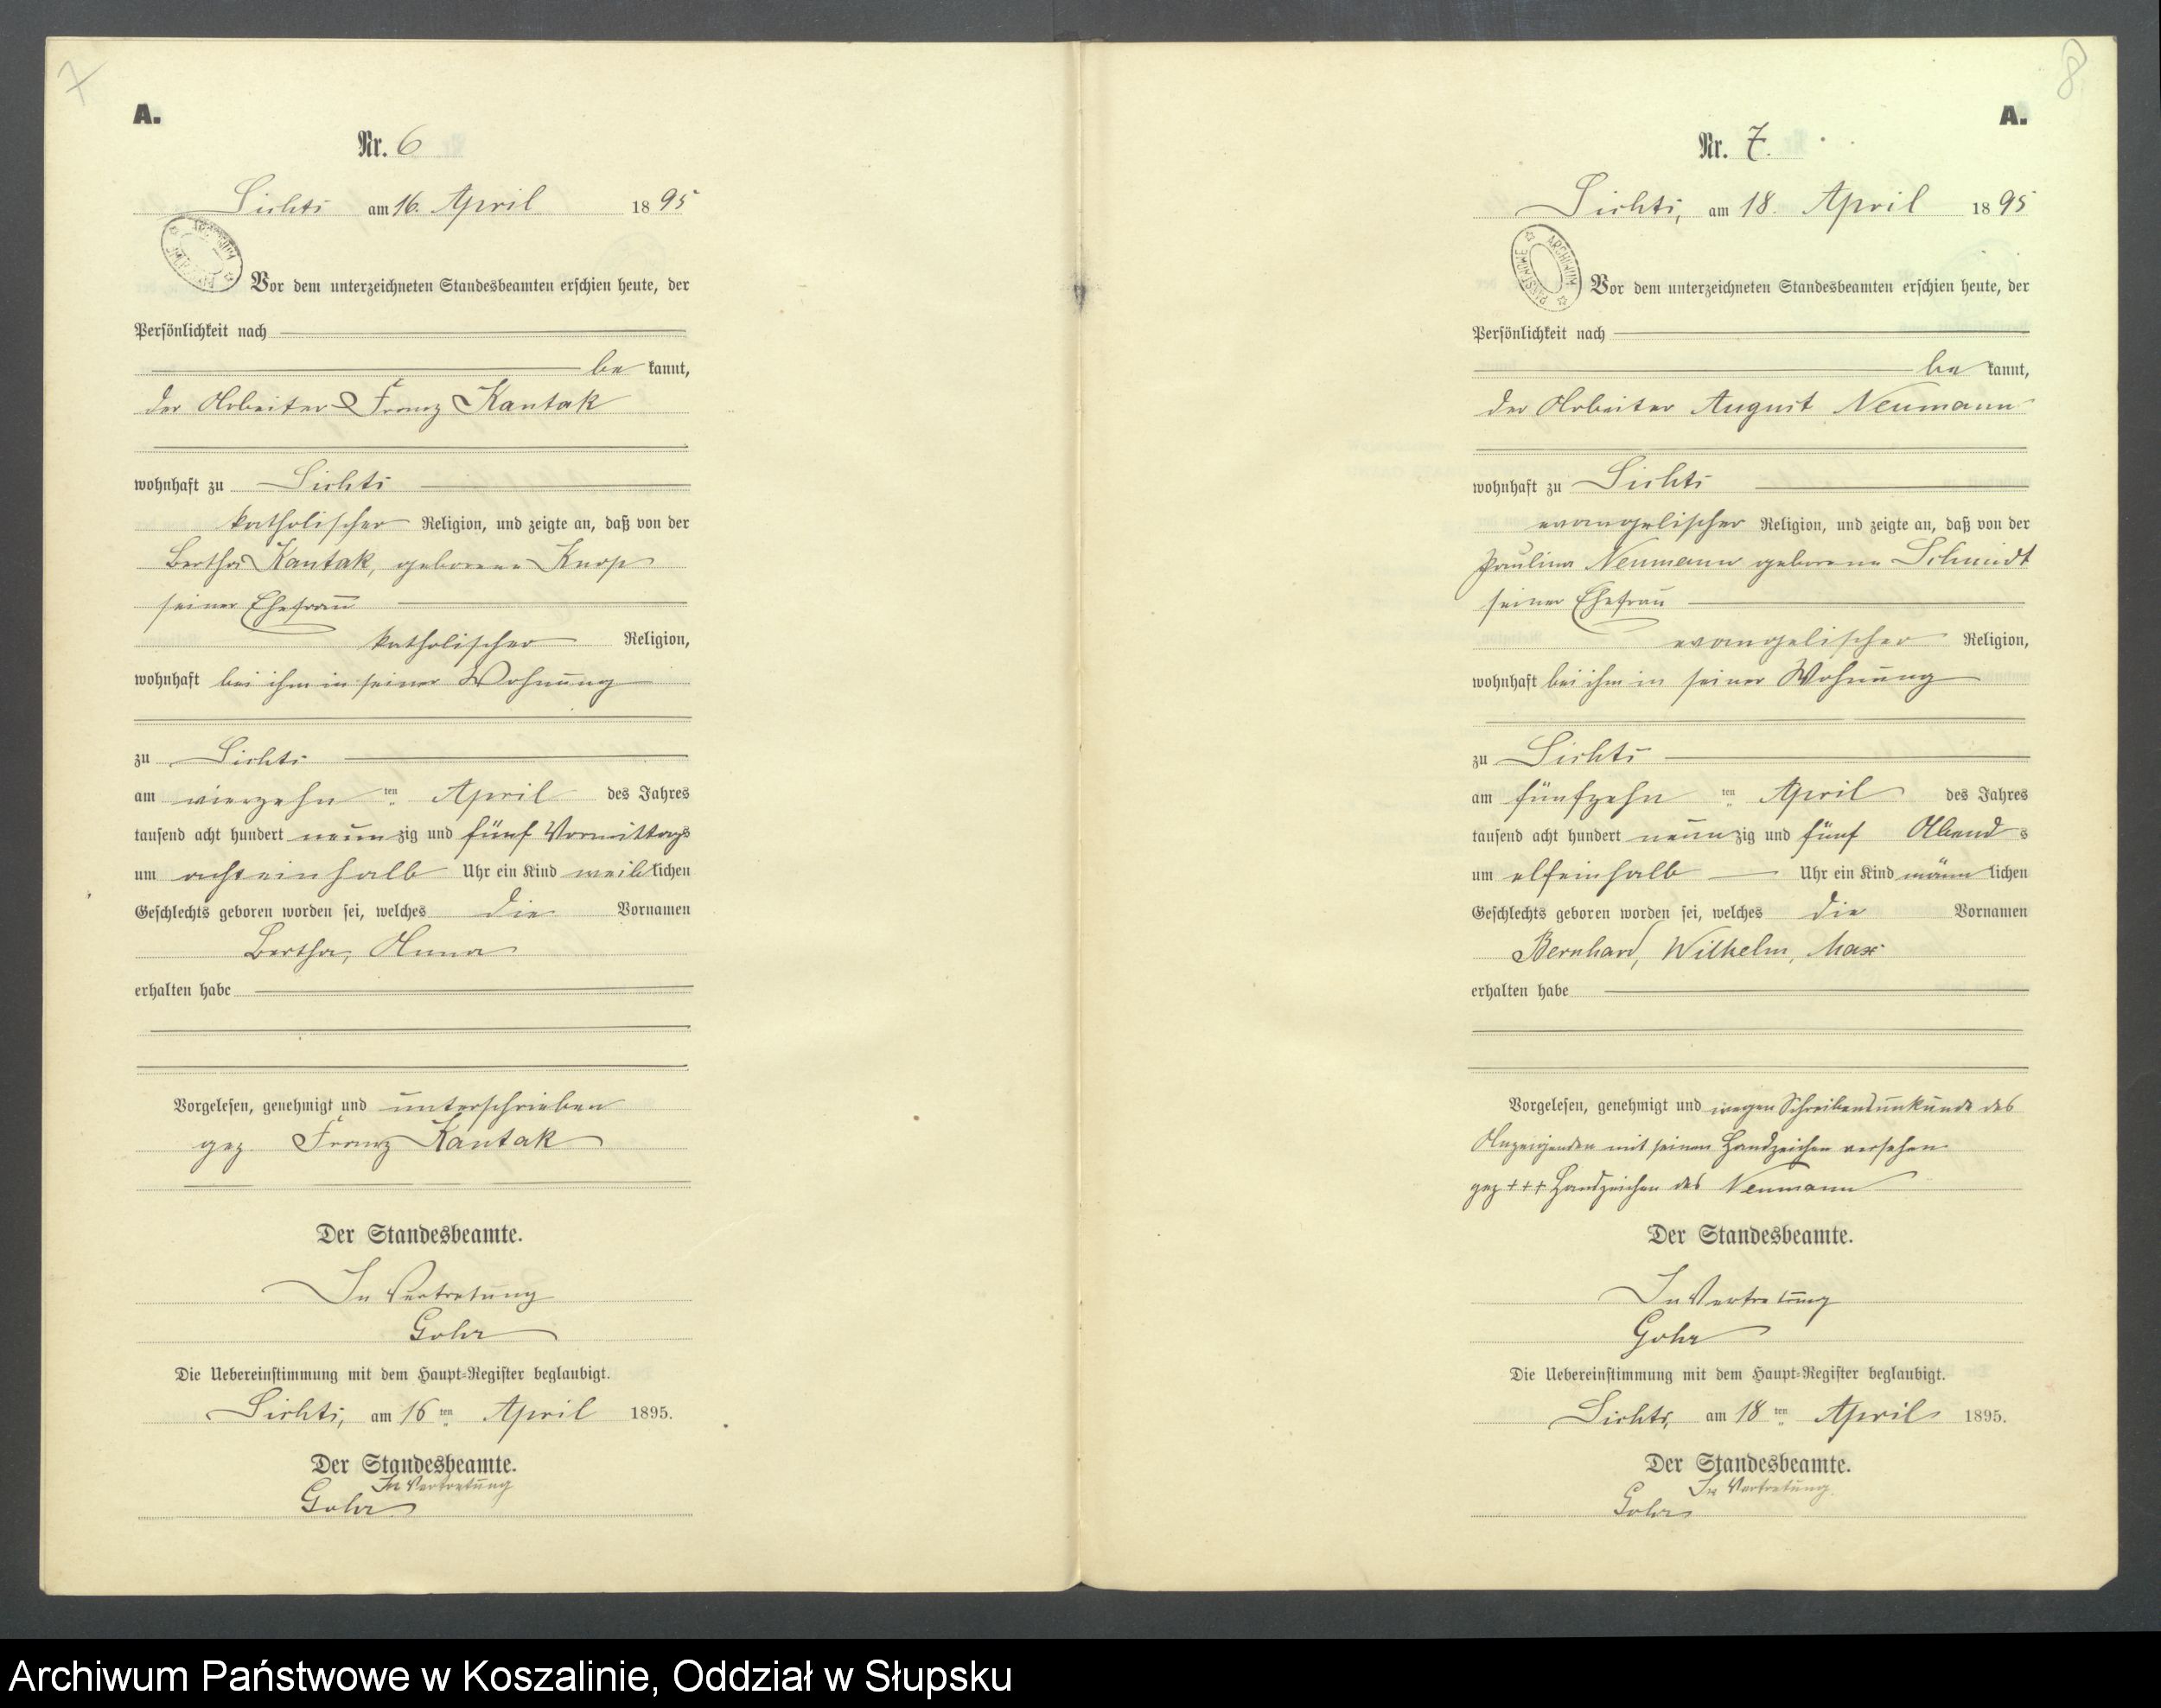 7
A.
Nr. 6
Lichts am 16. April 1895
ARCHIWUM
Vor dem unterzeichneten Standesbeamten erschien heute, der
Persönlichkeit nach
be kannt,
der Arbeiter Franz Kantak
wohnhaft zu Lichts
katholischer Religion, und zeigte an, daß von der
Bertha Kantak, geborene Knop
seiner Ehefrau
katholischer Religion,
wohnhaft bei ihm in seiner Wohnung
zu Lichts
am vierzehn ten April des Jahres
tausend acht hundert neun zig und fünf Vormittags
um achteinhalb Uhr ein Kind weib lichen
Geschlechts geboren worden sei, welches die Vornamen
Bertha, Anna
erhalten habe
Vorgelesen, genehmigt und unterschrieben
gez. Franz Kantak
Der Standesbeamte.
In Vertretung
Gohr
Die Uebereinstimmung mit dem Haupt-Register beglaubigt.
Lichts, am 16 ten April 1895.
Der Standesbeamte.
In Vertretung
Gohr
8
A.
Nr. 7.
Lichts, am 18. April 1895
ARCHIWUM PAŃSTWOWE
Vor dem unterzeichneten Standesbeamten erschien heute, der
Persönlichkeit nach
be kannt,
der Arbeiter August Neumann
wohnhaft zu Lichts
evangelischer Religion, und zeigte an, daß von der
Pauline Neumann geborene Schmidt
seiner Ehefrau
evangelischer Religion,
wohnhaft bei ihm in seiner Wohnung
zu Lichts
am fünfzehn ten April des Jahres
tausend acht hundert neun zig und fünf Abend s
um elfeinhalb Uhr ein Kind männ lichen
Geschlechts geboren worden sei, welches die Vornamen
Bernhard, Wilhelm, Max
erhalten habe
Vorgelesen, genehmigt und wegen Schreibensunkunde des
Anzeigenden mit seinem Handzeichen versehen
gez +++ Handzeichen des Neumann
Der Standesbeamte.
In Vertretung
Gohr
Die Uebereinstimmung mit dem Haupt-Register beglaubigt.
Lichts, am 18 ten April 1895.
Der Standesbeamte.
In Vertretung.
Gohr
Archiwum Państwowe w Koszalinie, Oddział w Słupsku